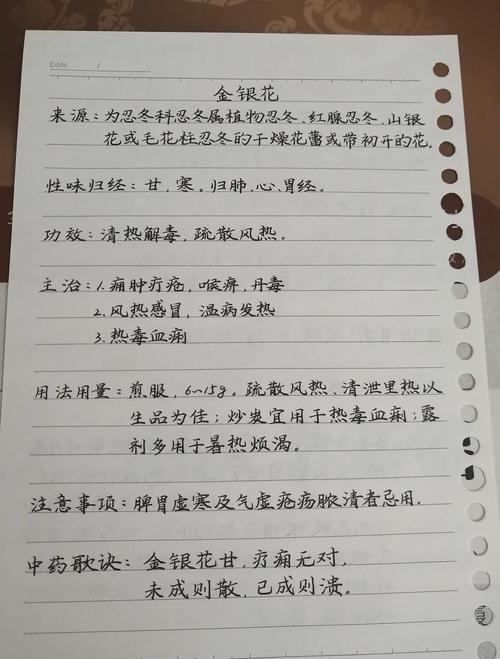 Date: /
金银花
来源:为忍冬科忍冬属植物忍冬、红腺忍冬、山银
花或毛花柱忍冬的干燥花蕾或带初开的花.
性味归经:甘,寒。归肺、心、胃经。
功效:清热解毒,疏散风热。
主治:1.痈肿疔疮,喉痹,丹毒
2.风热感冒,温病发热
3.热毒血痢
用法用量:煎服,6~15g。疏散风热、清泄里热以
生品为佳;炒炭宜用于热毒血痢;露
剂多用于暑热烦渴。
注意事项:脾胃虚寒及气虚疮疡脓清者忌用.
中药歌诀:金银花甘,疗痈无对,
未成则散,已成则溃。